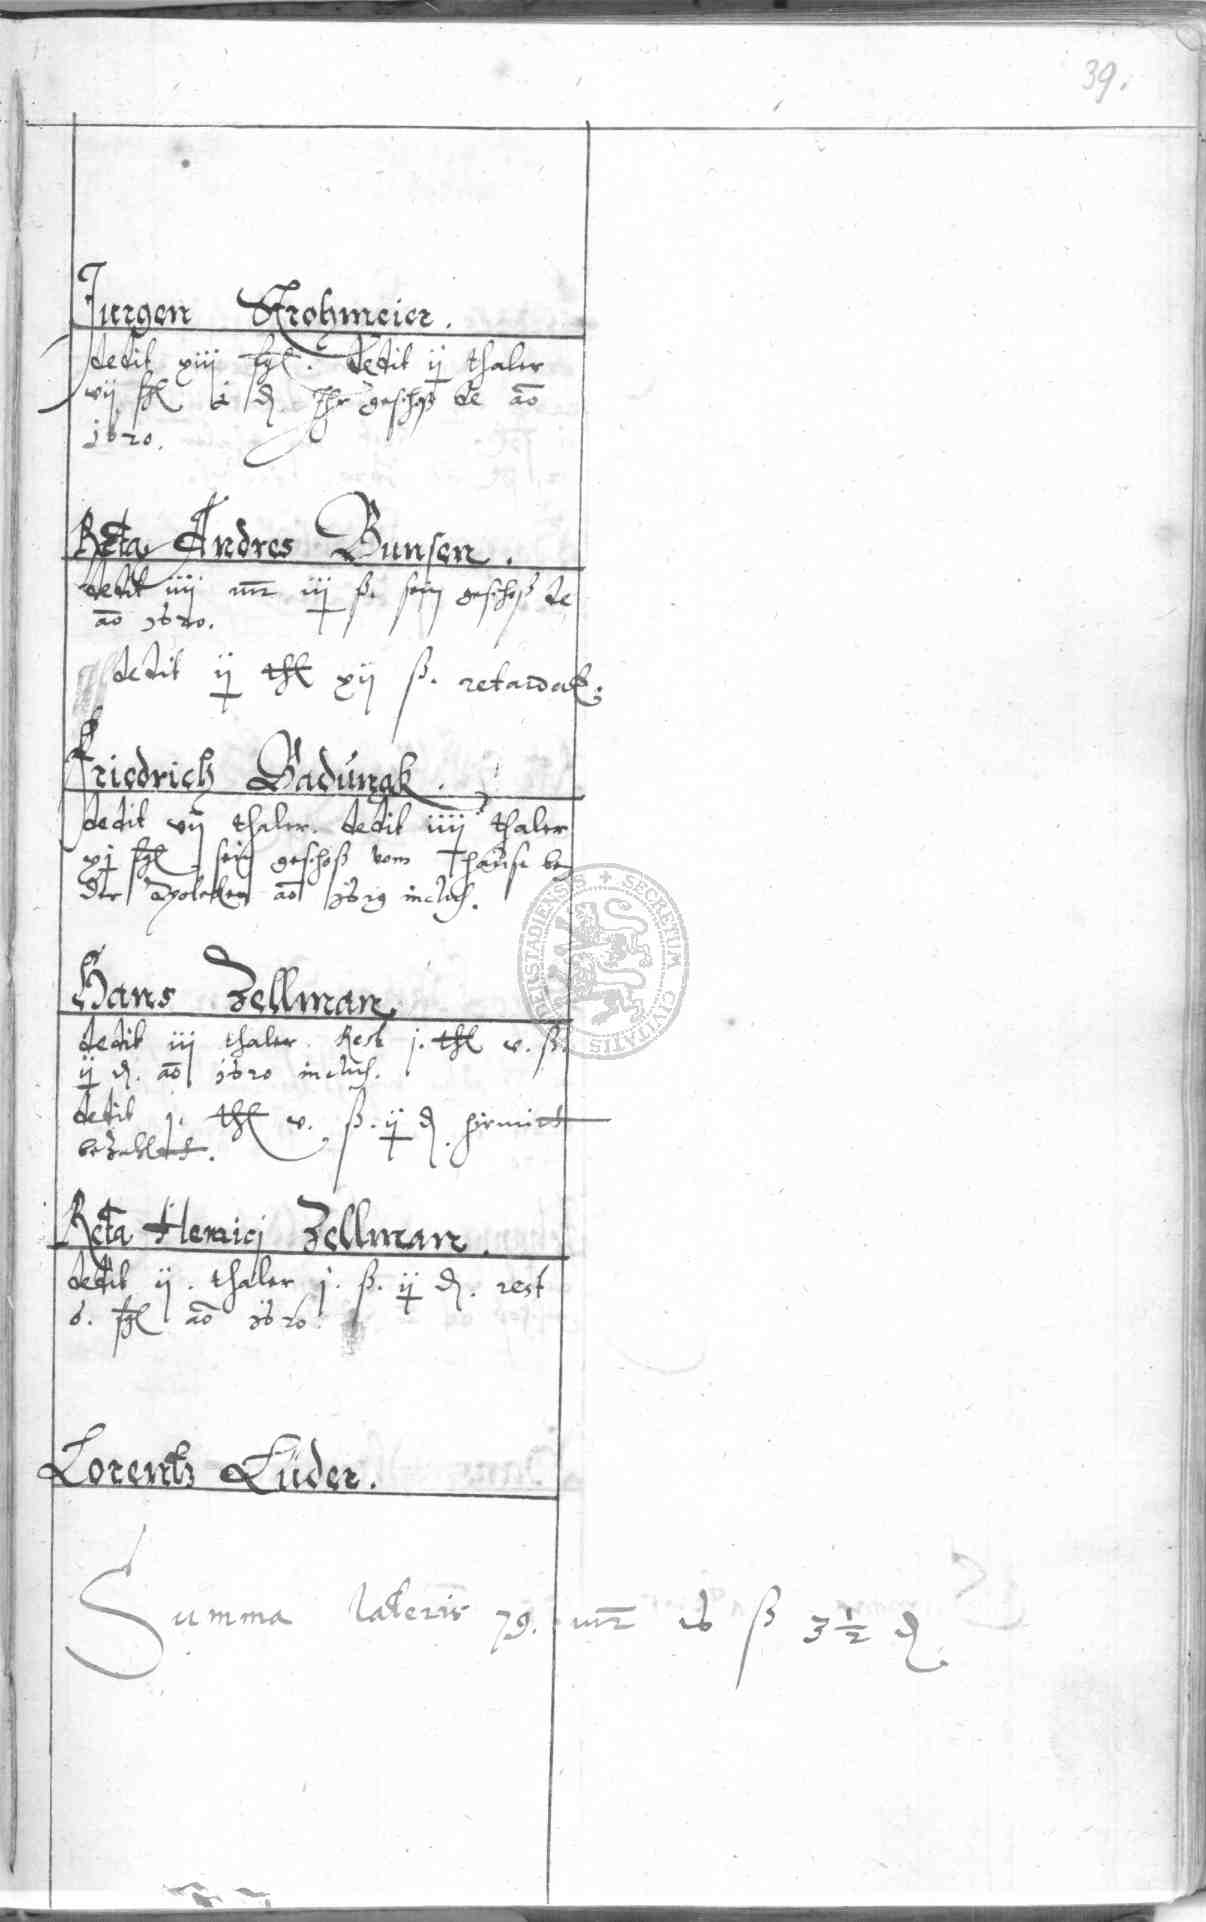 39.
Jurgen Krohmeier.
dedit xiii fgl. dedit ij thaler
vij fgl i d Ihr geschoß de ao
1620.
Reta Andres Bunsen.
dedit iiii mr iij ß. sein geschoß de
ao 1620.
dedit ij thl xij ß. retardat:
Friedrich Badungk.
dedit vij thaler. dedit iiij thaler
xj fgl sein geschoß vom hause bey
der Apoteken ao 1619 inclus.
Hans Zellman
dedit iii thaler. Rest j. thl v. ß.
ij d. ao 1620 inclus.
dedit j. thl v. ß. ij d. hirmitt
bezahlett.
Reta Henrici Zellman.
dedit ij. thaler j. ß. ij d. rest
6. fgl ao 1620.
Lorentz Lüder.
Summa lateris 79. mr 16 ß 3 1/2 d.
SECRETUM CIVITATIS